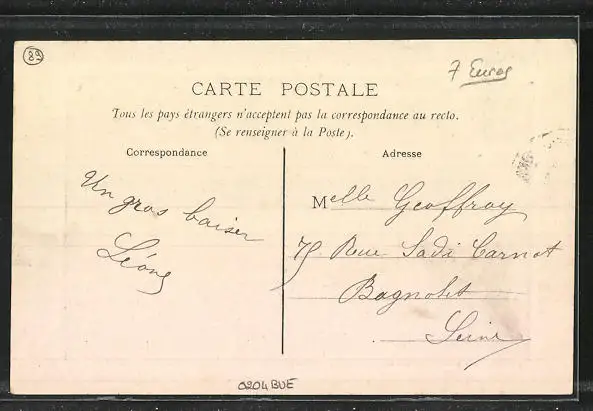 89
7 Euros
CARTE POSTALE
Tous les pays étrangers n'acceptent pas la correspondance au recto.
(Se renseigner à la Poste).
Correspondance
Un gros baiser
Léone
Adresse
Melle Geoffroy
75 Rue Sadi Carnot
Bagnolet
Seine
0204BUE